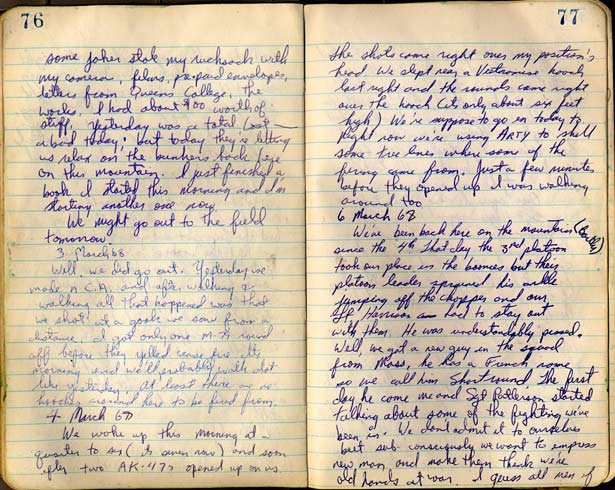 76
some joker stole my rucksack with
my camera, films, pre-paid envelopes,
letters from Queens College, the
works. I had about $100 worth of
stuff. Yesterday was a total lost
a bad today; but today they're letting
us relax on the bunkers back here
on this mountain. I just finished a
book I started this morning and I'm
starting another one now.
We might go out to the field
tomorrow.
3 March 68
Well, we did go out. Yesterday we
made a C.A. and after walking &
walking all that happened was that
we shot at a gook we saw from a
distance. I got only one M-79 round
off before they yelled cease fire. It's
morning and we'll probably walk alot
like yesterday. At least there are no
hooches around here to be fired from.
4 March 68
We woke up this morning at
quarter to six (its seven now) and soon
after two AK-47s opened up on us.
77
The shots came right over my position's
head. We slept near a Vietnamese hooch
last night and the rounds came right
over the hooch (its only about six feet
high) We're suppose to go in today to
Right now we're using ARTY to shell
some tree lines where some of the
firing came from. Just a few minutes
before they opened up I was walking
around too.
6 March 68
We've been back here on the mountain
since the 4th. That day the 3rd platoon
took our place in the boonies but their
platoon leader sprained his ankle
jumping off the chopper and our
Lt Harrison had to stay out
with them. He was understandably pissed.
Well, we got a new guy in the squad
from Mass, he has a French name
so we call him Shortround. The first
day he come me and Sgt Patterson started
talking about some of the fighting we've
been in. We don't admit it to ourselves
but sub-consciously we want to impress
new man, and make them think we're
old hands at war. I guess all men of